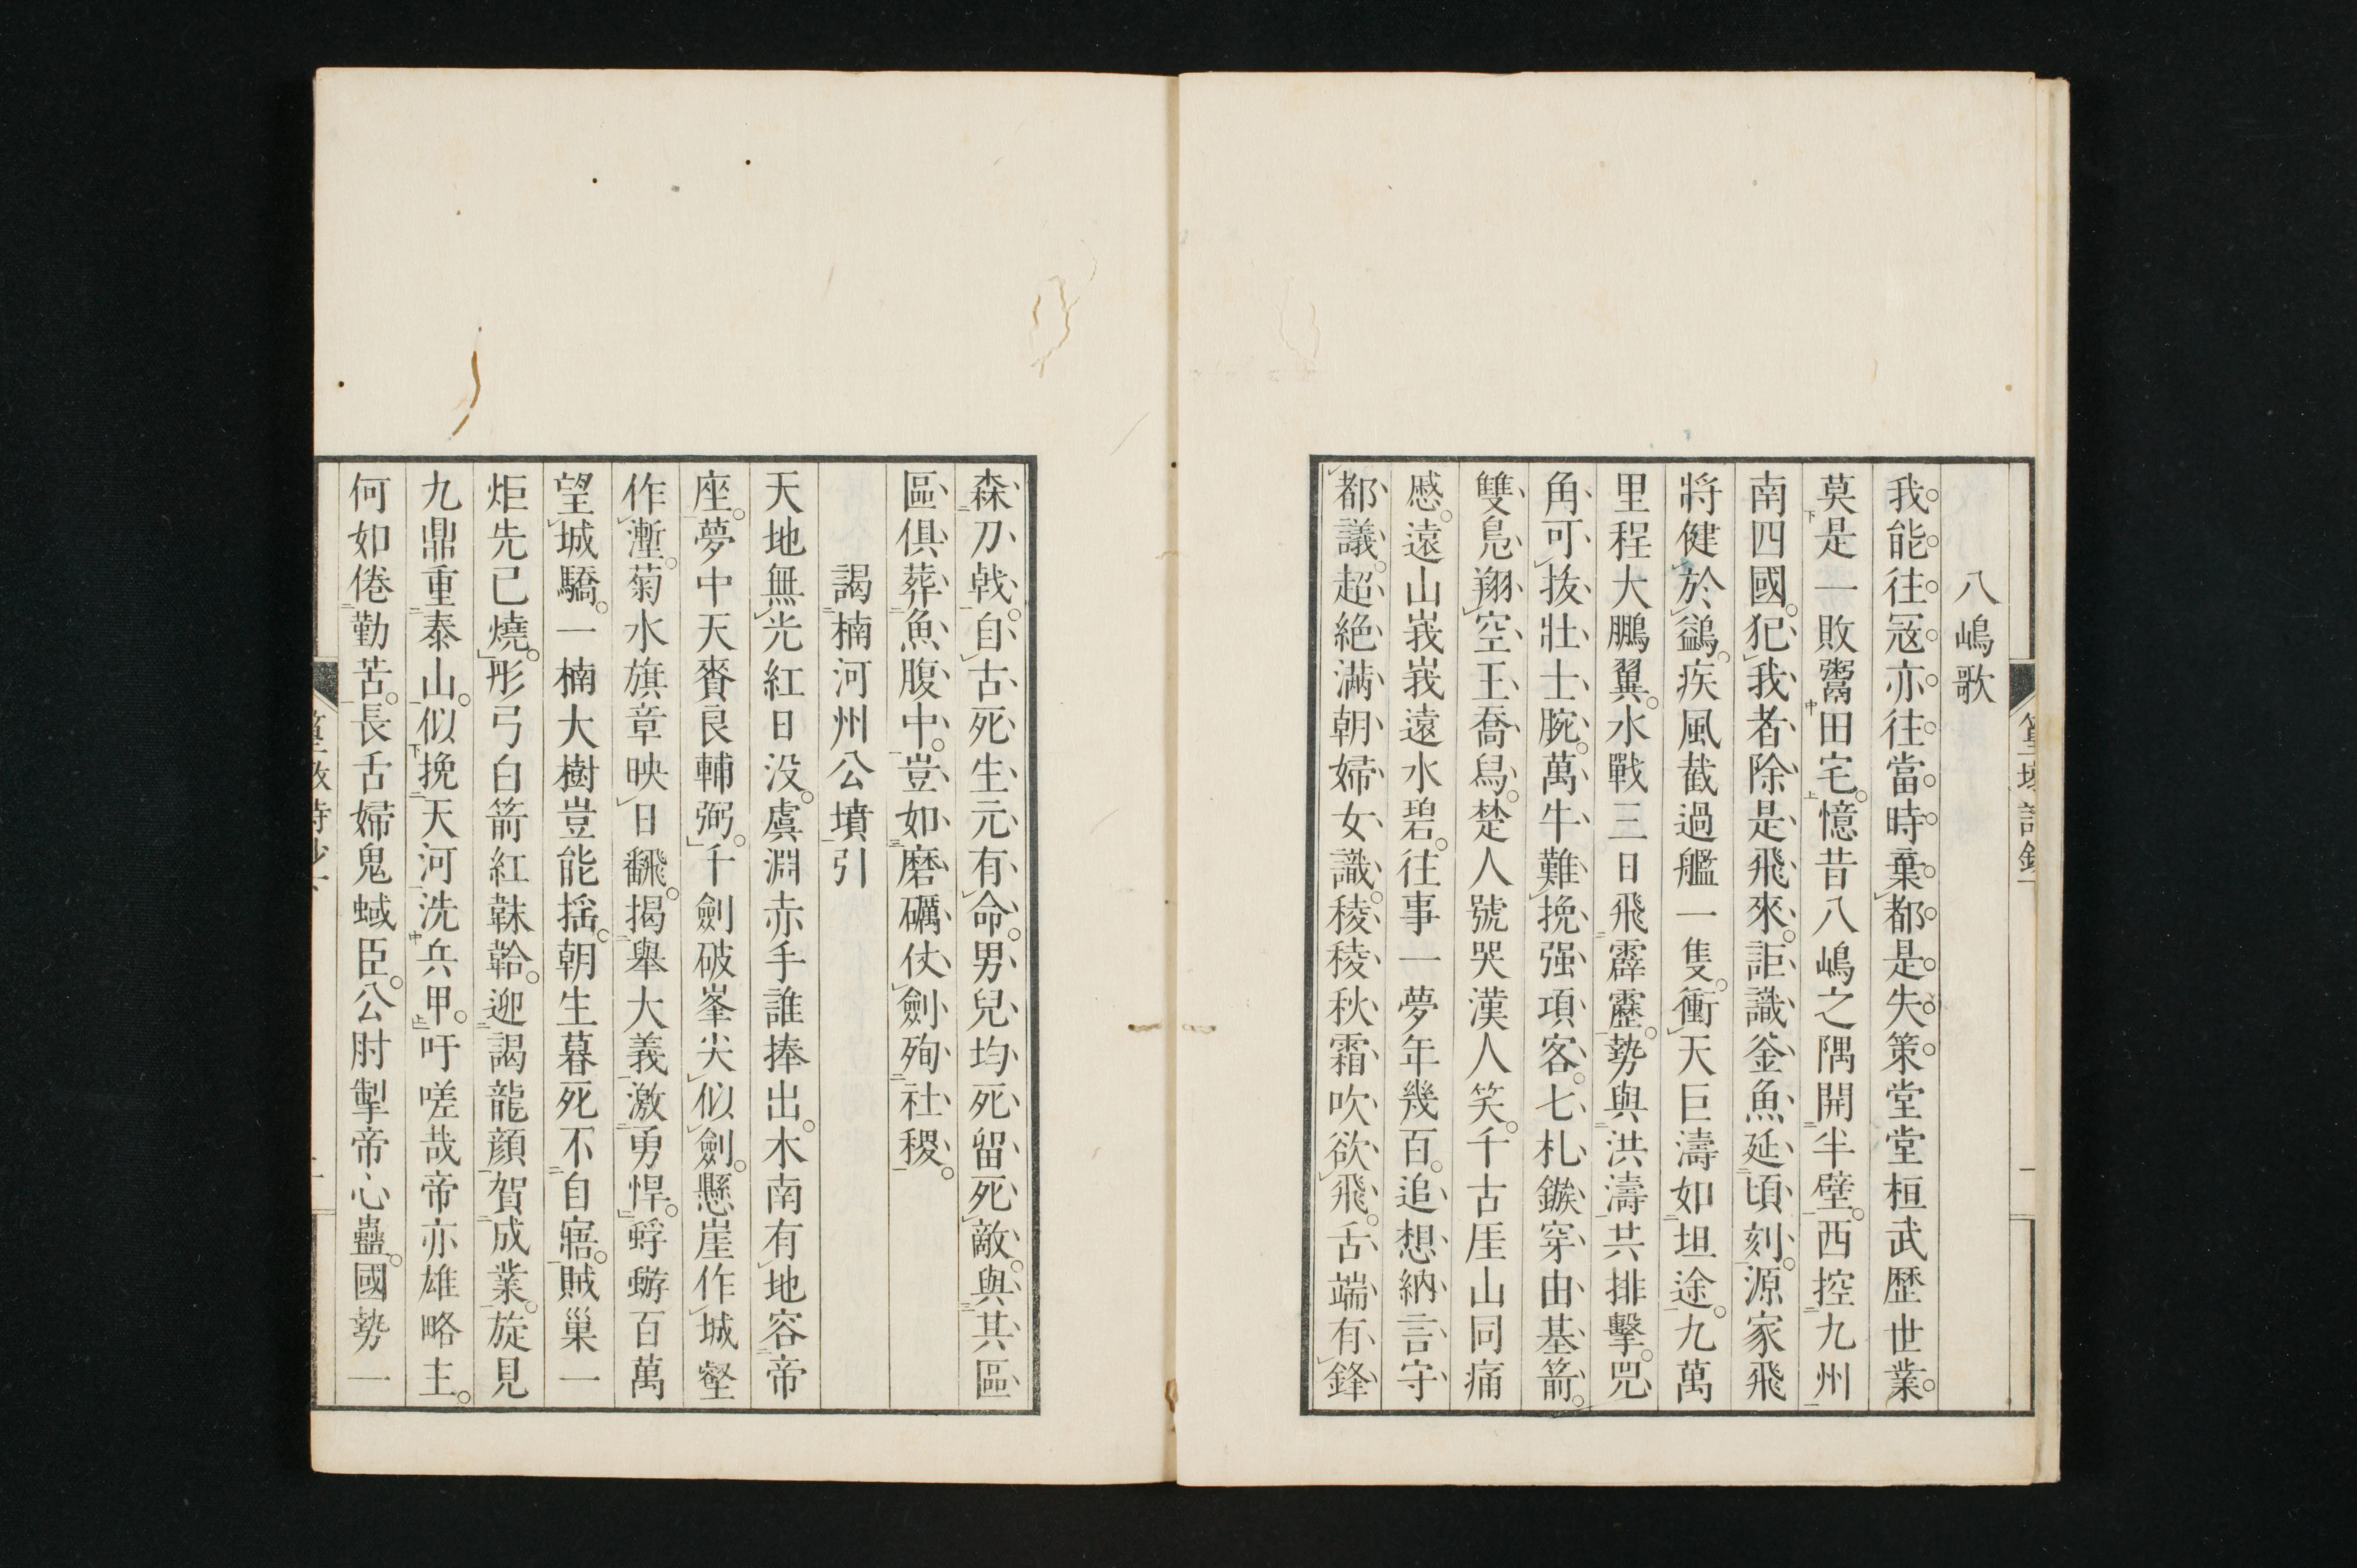 八嶋歌
我能往寇亦往當時棄都是失策堂堂桓武歷世業
莫是一敗鬻田宅憶昔八嶋之隅開半壁西控九州
南四國犯我者除是飛來詎識釜魚延頃刻源家飛
將健於鷁疾風截過艦一隻衝天巨濤如坦途九萬
里程大鵬翼水戰三日飛霹靂勢與洪濤共排擊兕
角可拔壯士腕萬牛難挽强項客七札鏃穿由基箭
雙鳧翔空王喬舄楚人號哭漢人笑千古厓山同痛
慼遠山峩峩遠水碧往事一夢年幾百追想納言守
都議超絶滿朝婦女識稜稜秋霜吹欲飛舌端有鋒
森刀戟自古死生元有命男兒均死留死敵與其區
區俱葬魚腹中豈如磨礪仗劍殉社稷
謁楠河州公墳引
天地無光紅日没虞淵赤手誰捧出木南有地容帝
座夢中天賚良輔弼千劍破峯尖似劍懸崖作城壑
作塹菊水旗章映日飜揭舉大義激勇悍蜉蝣百萬
望城驕一楠大樹豈能揺朝生暮死不自寤賊巢一
炬先已燒彤弓白箭紅韎韐迎謁龍顔賀成業旋見
九鼎重泰山似挽天河洗兵甲吁嗟哉帝亦雄略主
何如倦勤苦長舌婦鬼蜮臣公肘掣帝心蠱國勢一